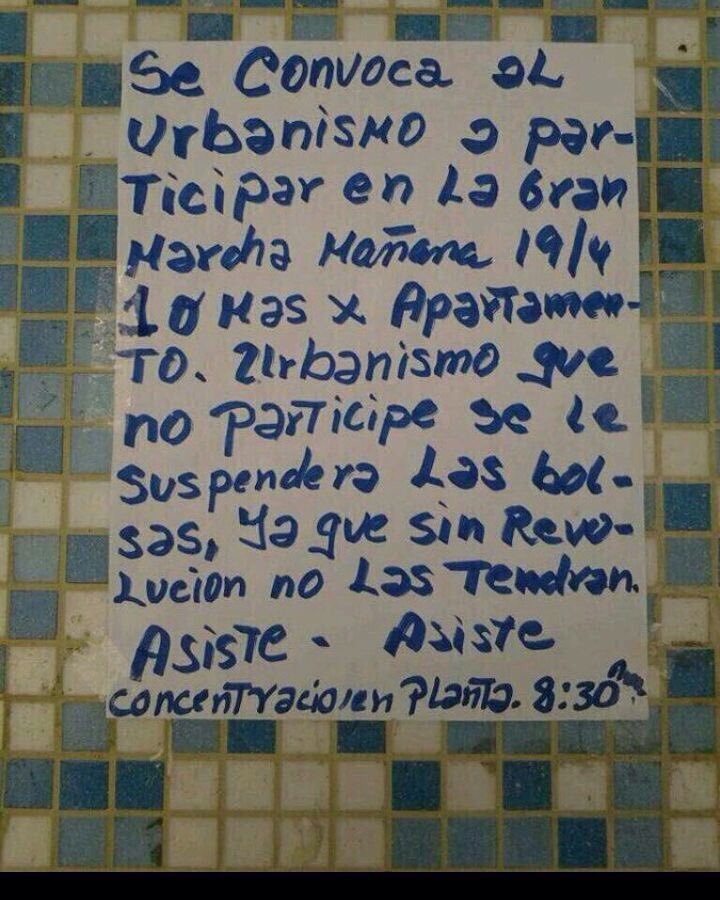 Se Convoca al
Urbanismo a par-
Ticipar en La Gran
Marcha Mañana 19/4
1 o Mas x Apartamen-
TO. Urbanismo que
no participe se le
suspendera Las bol-
sas, Ya que sin Revo-
Lucion no Las Tendran.
Asiste - Asiste
concentracion en Planta. 8:30 am.